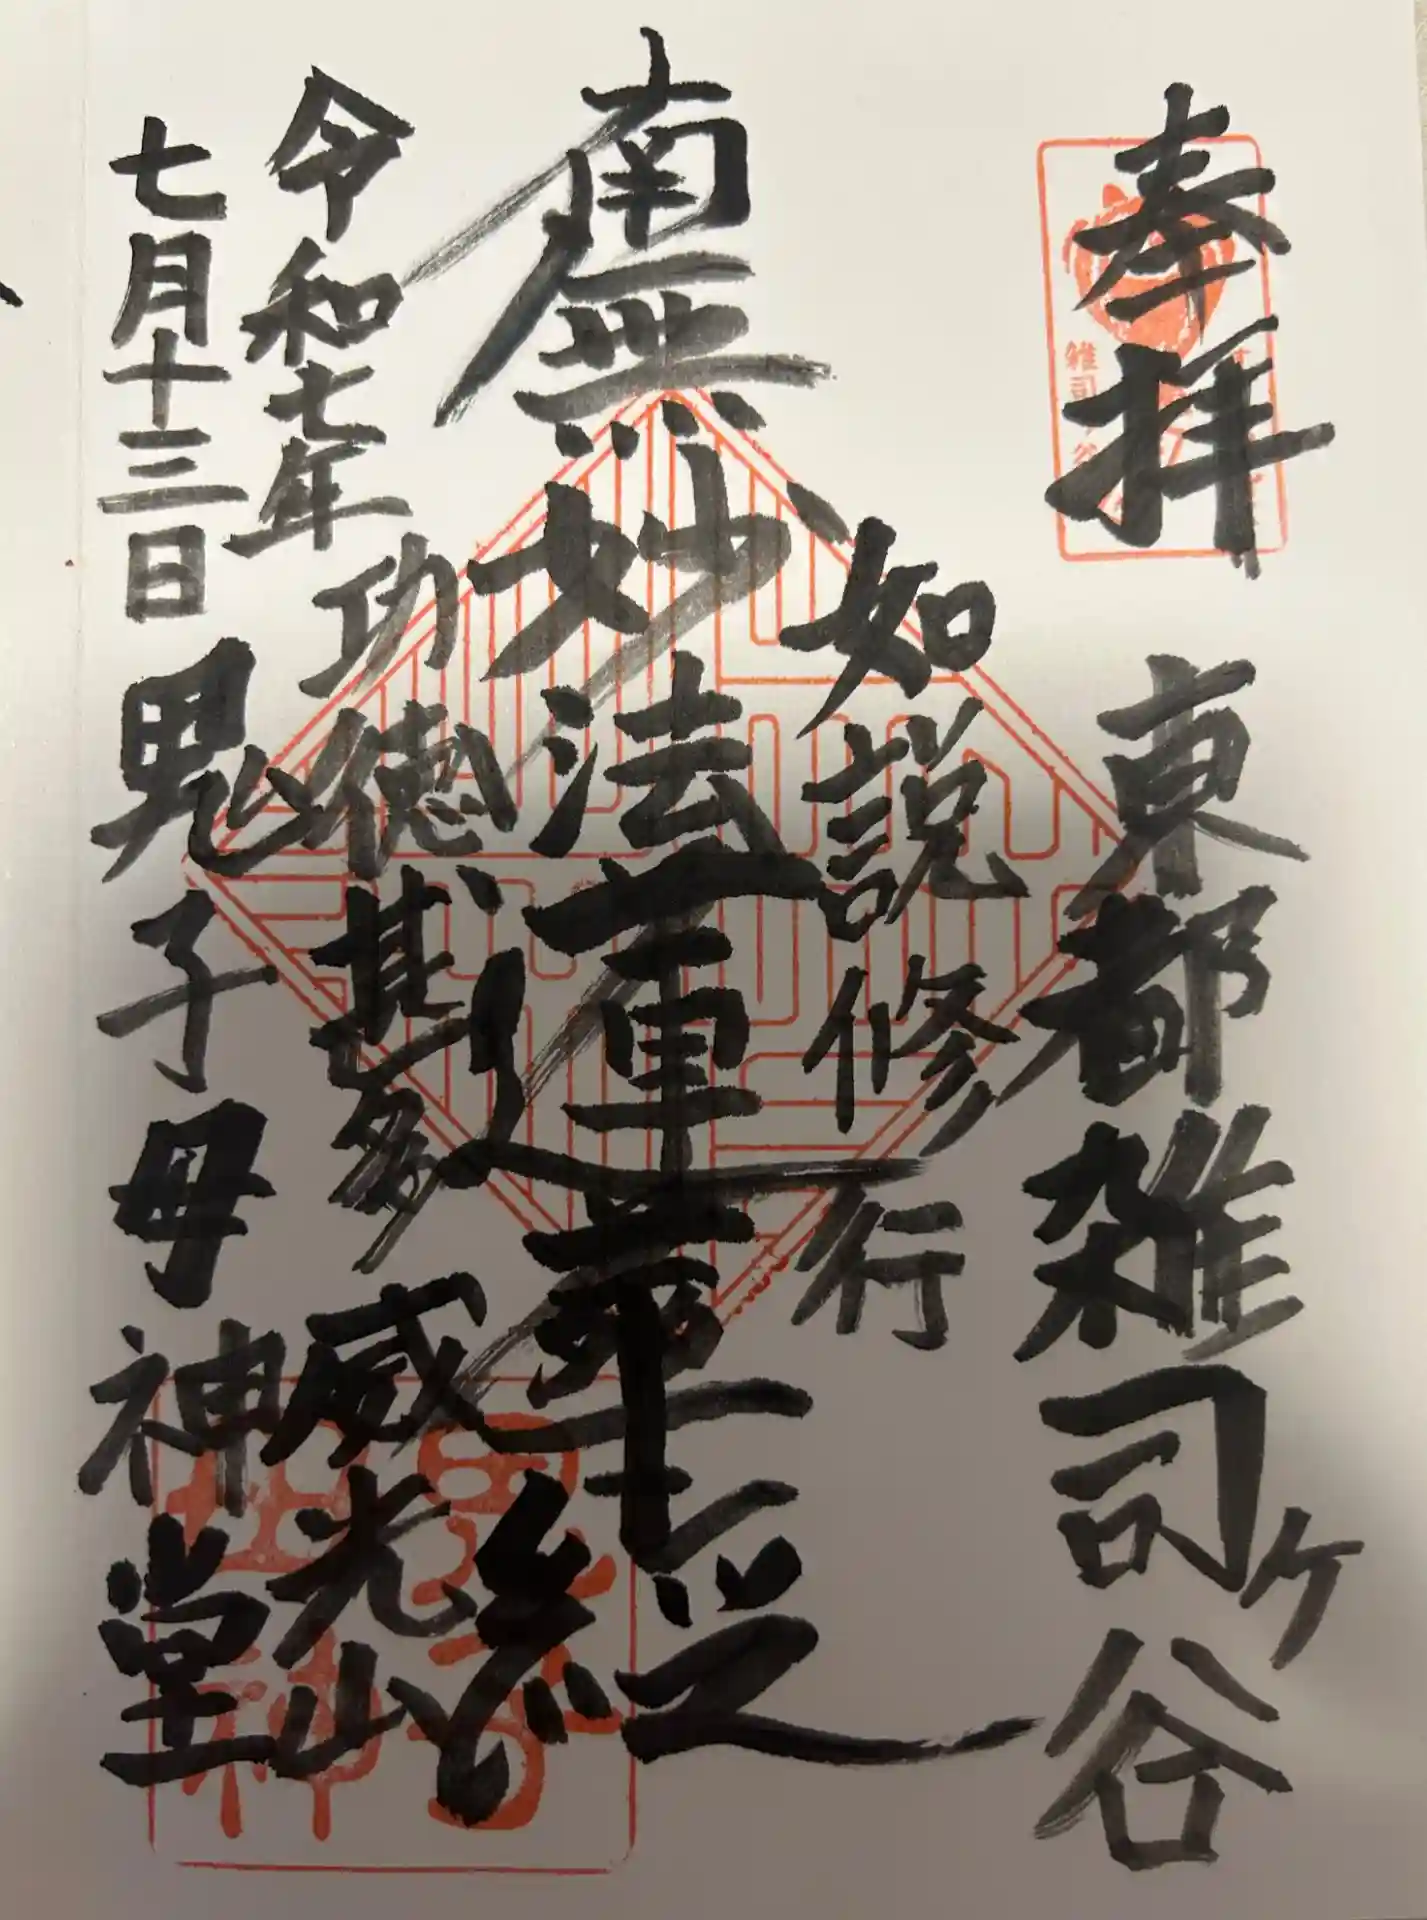 奉拝
東都雑司ヶ谷
如説修行
南無妙法蓮華経
功徳甚多
令和七年
威光山
七月十三日
鬼子母神堂